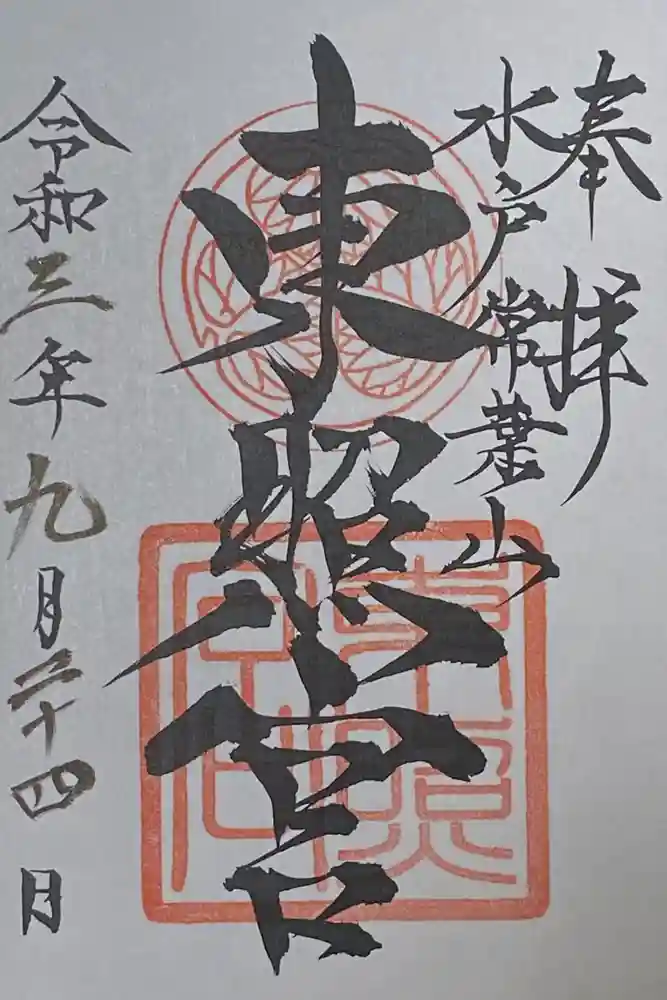 奉拝
水戸常葉山
東照宮
令和三年九月二十四日
東照宮印